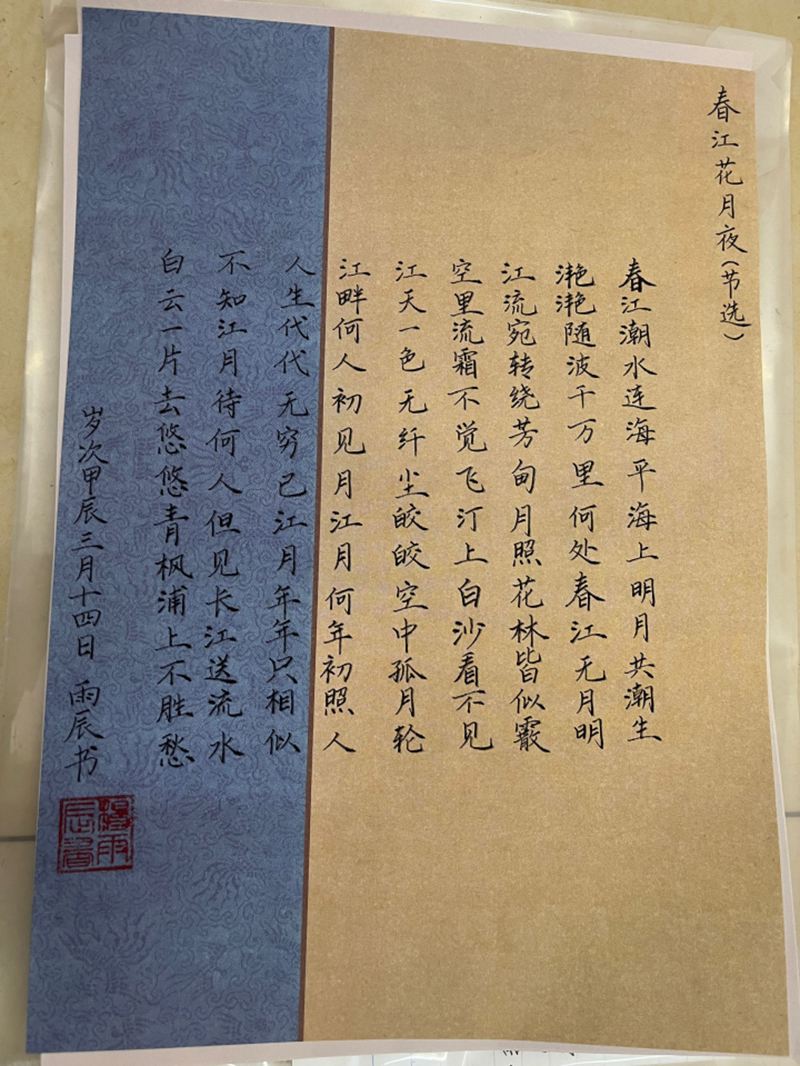 春江花月夜(节选)
春江潮水连海平海上明月共潮生
滟滟随波千万里何处春江无月明
江流宛转绕芳甸月照花林皆似霰
空里流霜不觉飞汀上白沙看不见
江天一色无纤尘皎皎空中孤月轮
江畔何人初见月江月何年初照人
人生代代无穷已江月年年只相似
不知江月待何人但见长江送流水
白云一片去悠悠青枫浦上不胜愁
岁次甲辰三月十四日 雨辰书